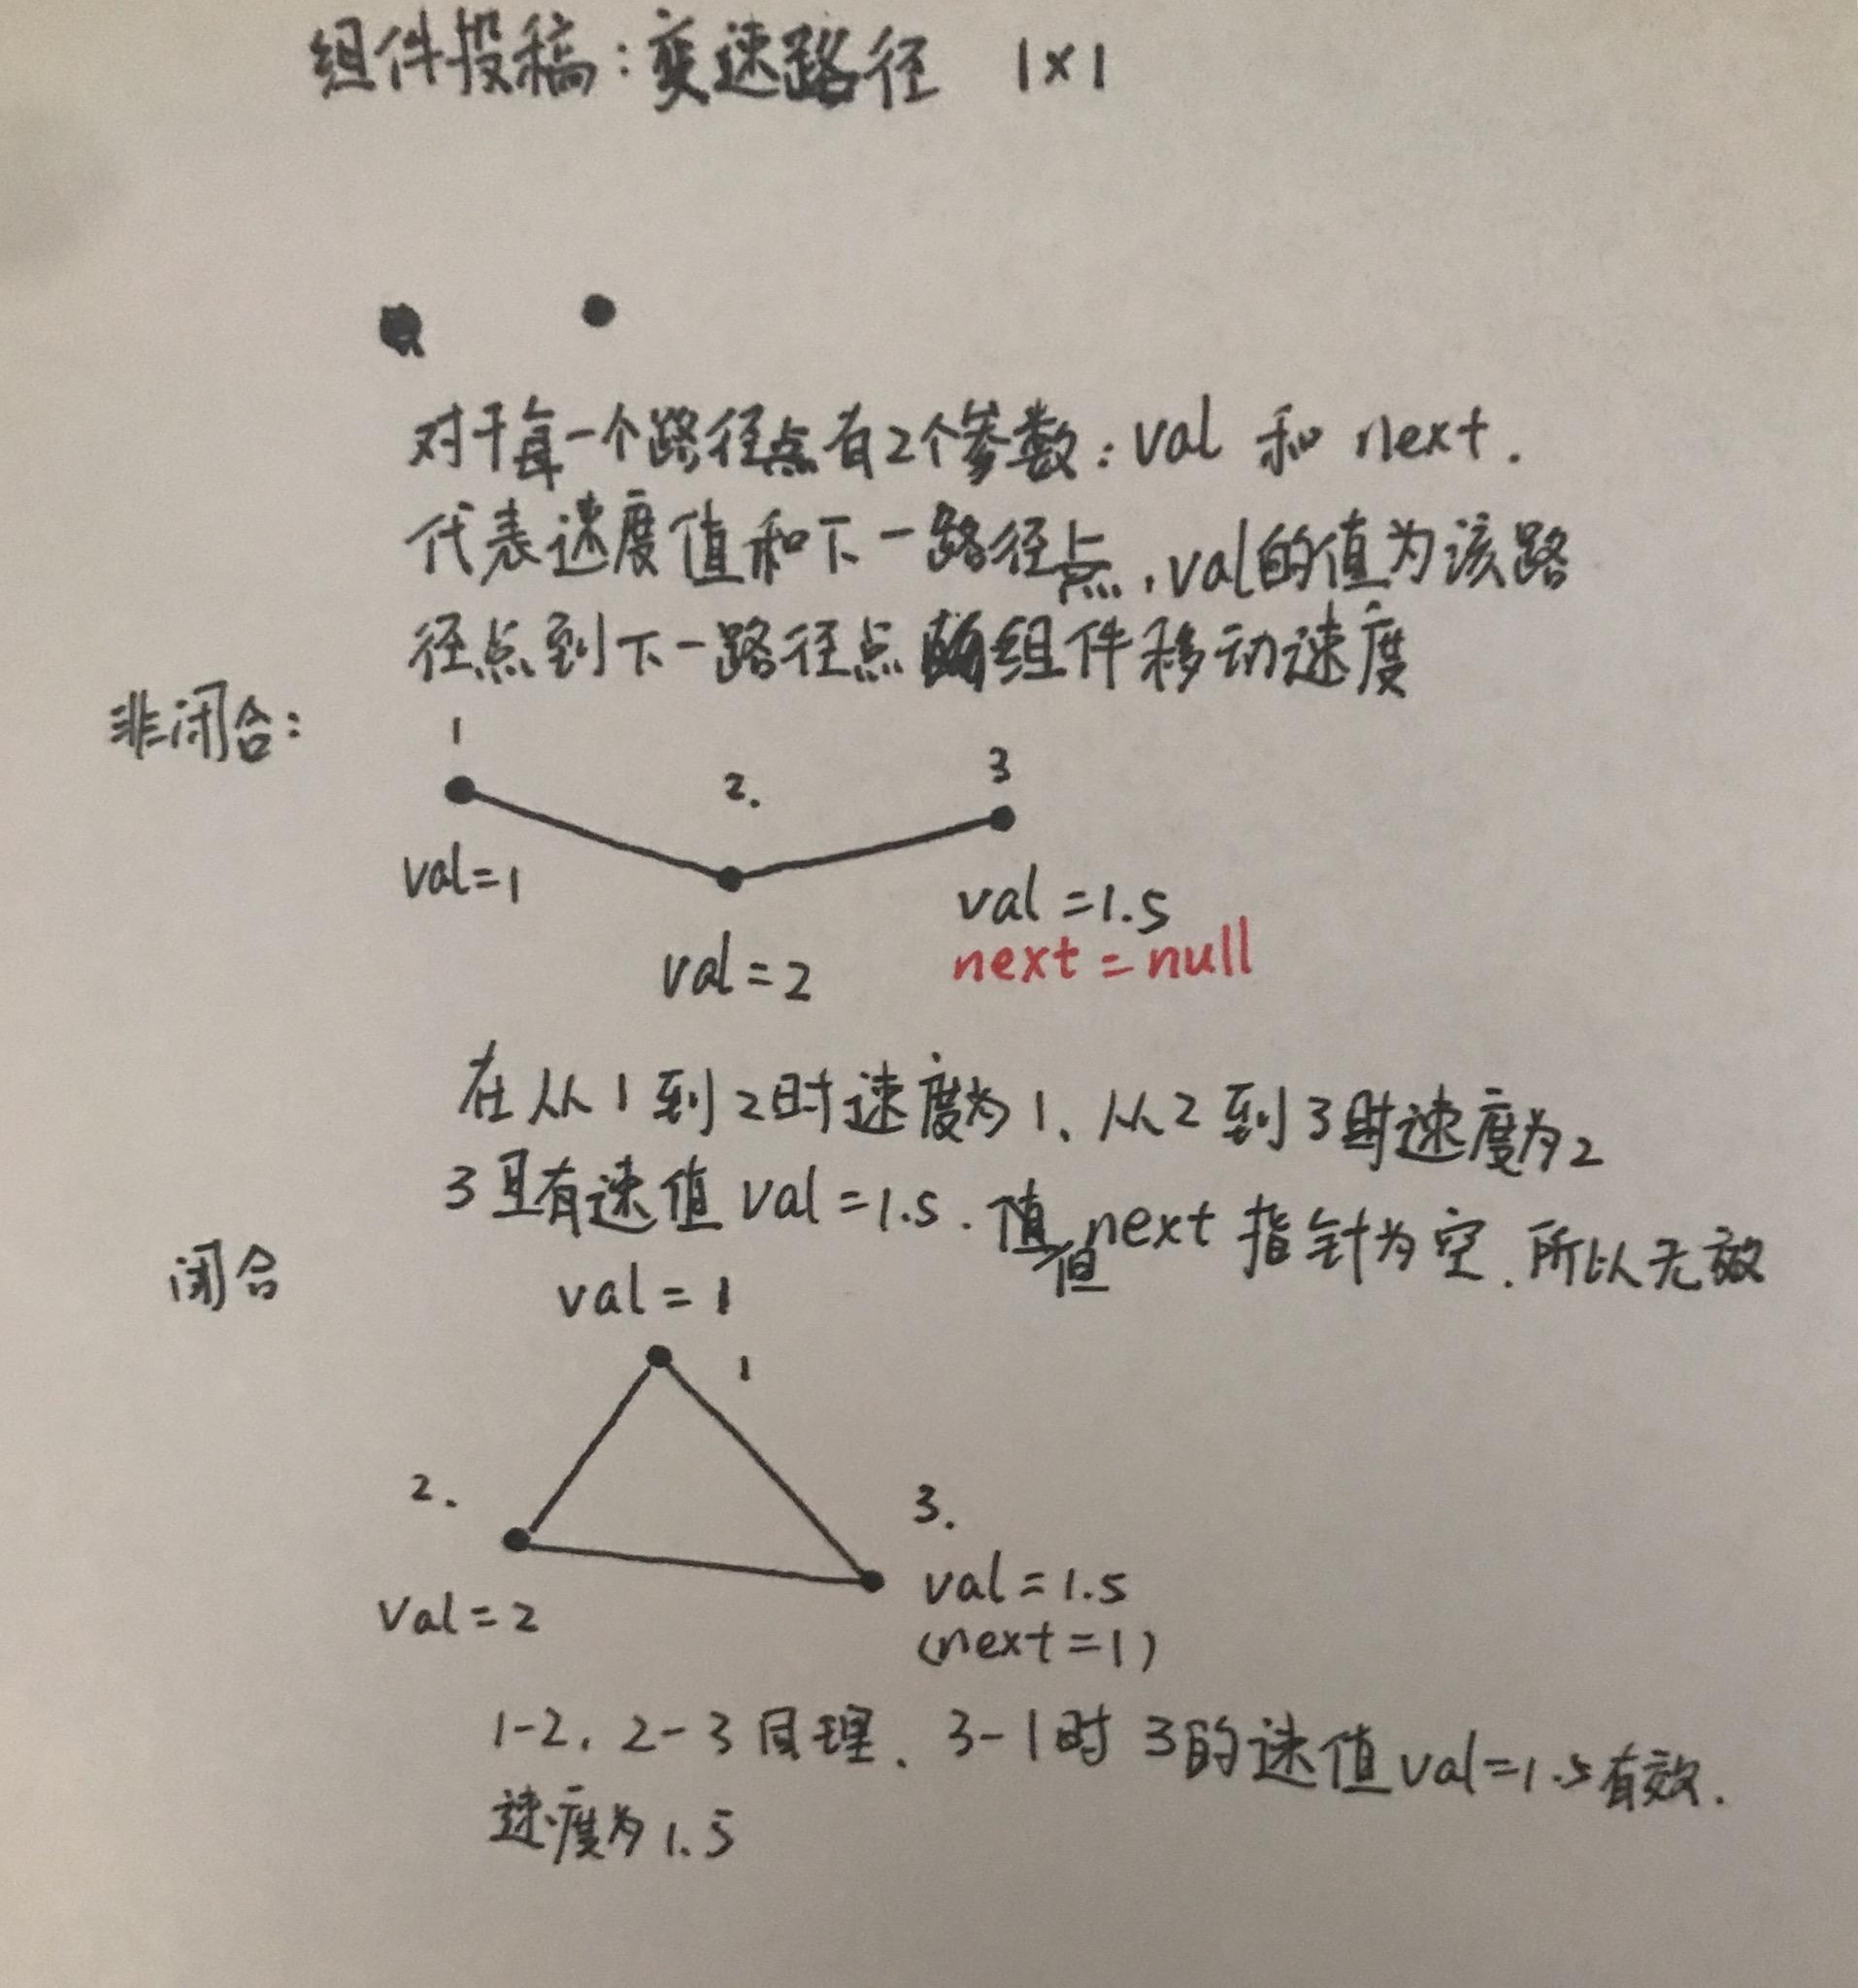 组件投稿：变速路径 1×1
对于每一个路径点有2个参数：val 和 next.
代表速度值和下一路径点，val的值为该路
径点到下一路径点的组件移动速度
非闭合：
1
2.
3
val=1
val=2
val=1.5
next=null
在从1到2时速度为1、从2到3时速度为2
3且有速值 val=1.5. 但 next 指针为空.所以无效
闭合
val=1
1
2.
3.
val=2
val=1.5
(next=1)
1-2, 2-3同理、3-1时 3的速值val=1.5有效.
速度为1.5